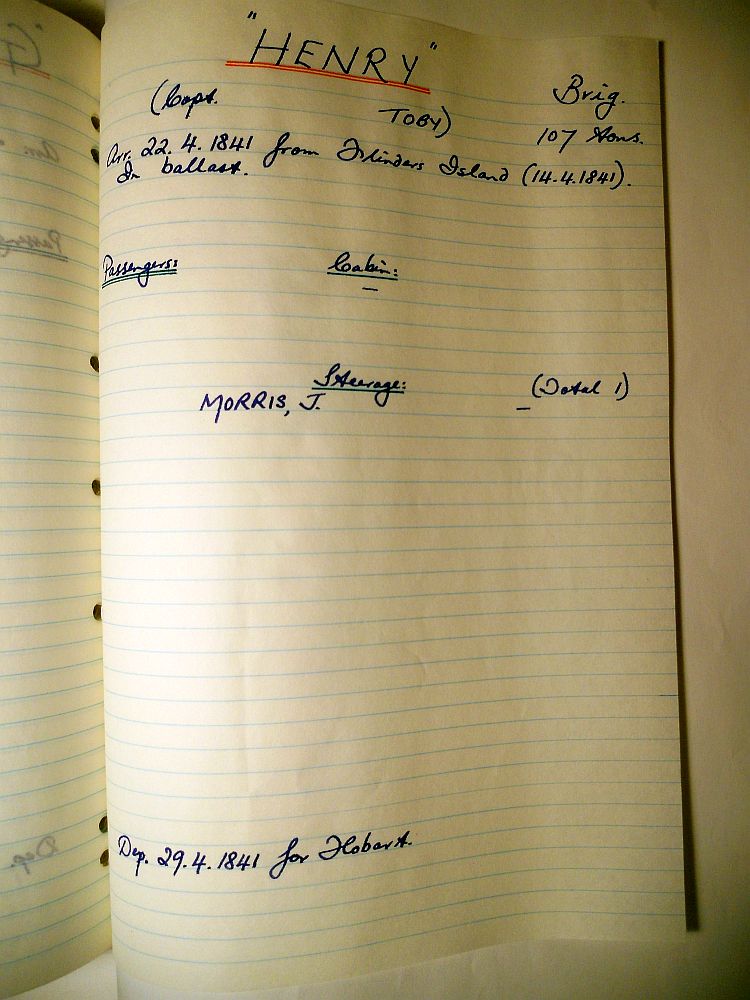 "HENRY"
(Capt. TOBY) Brig.
107 tons.
Arr. 22.4.1841 from Flinders Island (14.4.1841).
In ballast.
Passengers: Cabin:
—
Steerage: (Total 1)
MORRIS, J. —
Dep. 29.4.1841 for Hobart.